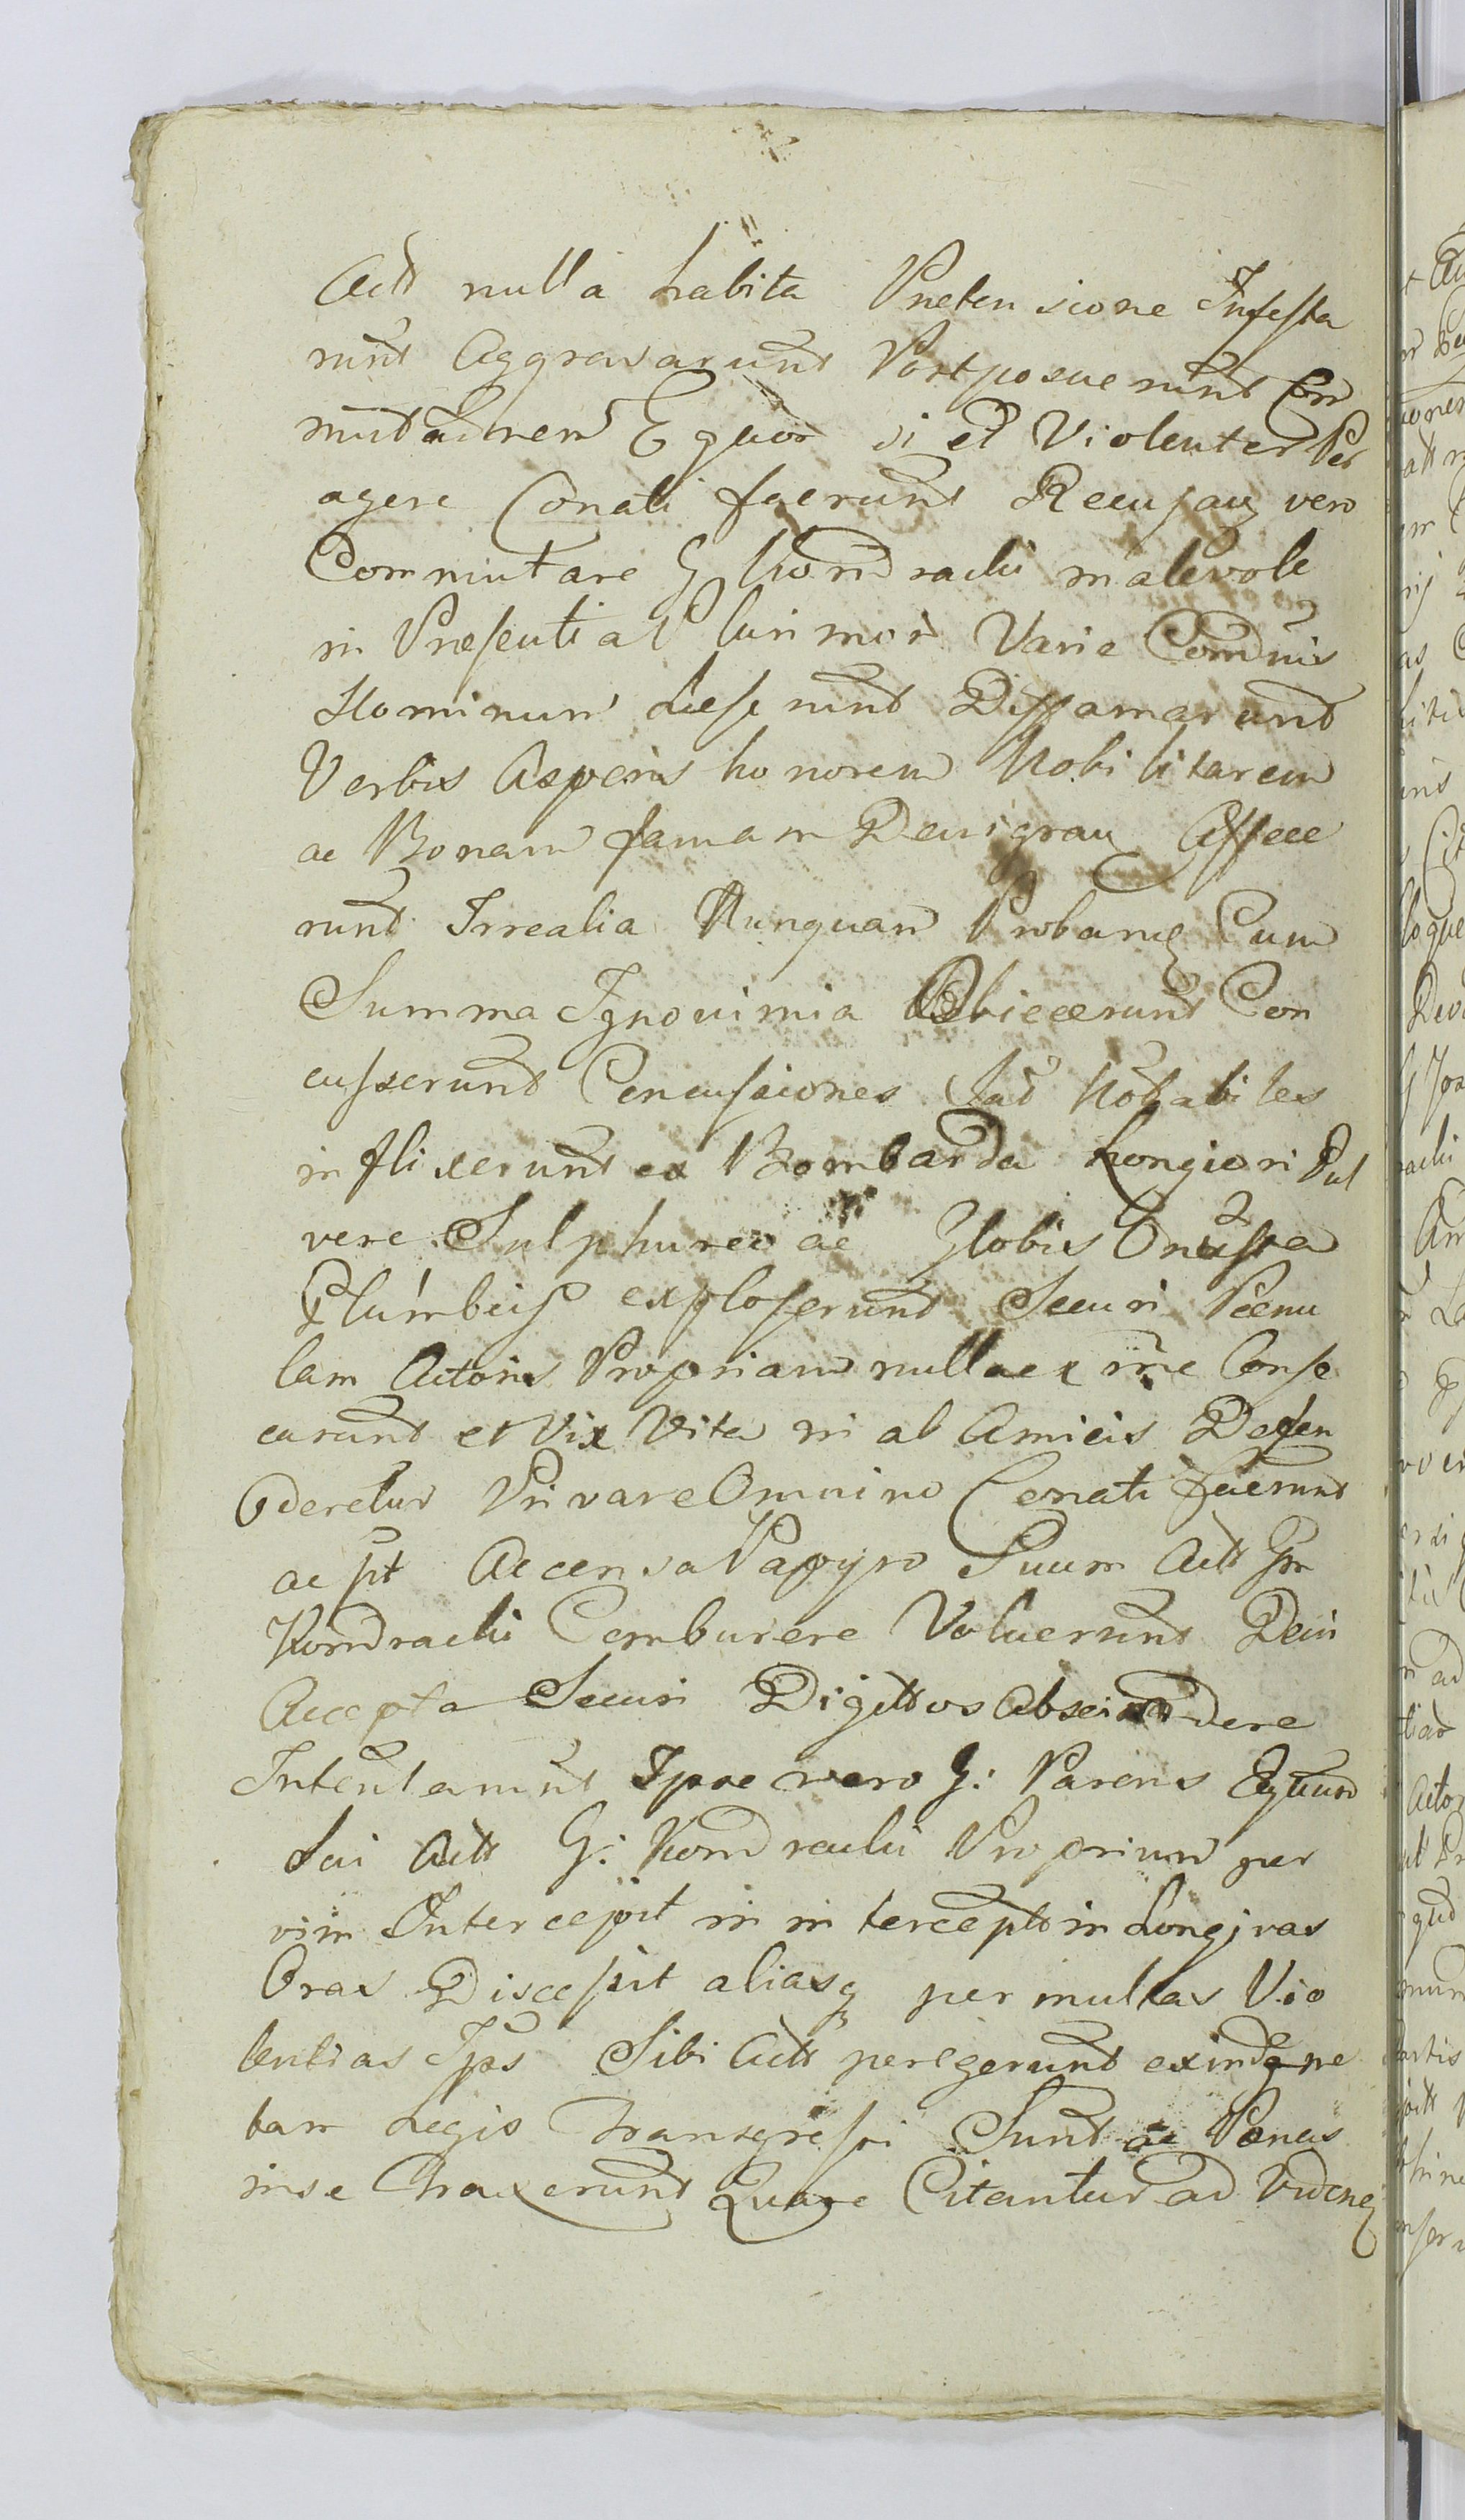 Actt nulla habita Pretensione Infesta
runt Aggravarunt Postposuerunt Com
mutationem Equor vi et Violenter Per
agere Conati fuerunt Recusan vero
Commutare G Kondradii malevole
in Presentia Plurimor Varie Condnis
Hominum Læserunt Diffamarunt
Verbis Asperis honorem Nobilitarem
ac Bonam famam Denigran Affece
runt Irrealia Nunquam Proban Cum
Summa Ignominia Obiecerunt Con
cusserunt Concussiones Notabiles
inflixerunt ex Bombarda Longiori Pul
vere Sulphureo ac Globis Onusta
Plumbeis exploserunt Securi Penu
lam Actoris Propriam nulla ex rne Conse
carunt et Vix Vita ni ab Amicis Defen
deretur Privare Omnino Conati fuerunt
ac pt Accensa Papyro Suum Actt Gm
Kondradii Comburere Voluerunt Dein
Accepta Securi Digittos Abscindere
Intentarunt Ipse vero G: Parens Equum
Sui Actt G: Kondradii Proprium per
vim Intercepit in intercepto in Longivas
Oras Discessit aliasq per multas Vio
lentias Ips Sibi Actt peregerunt exindq me
tam Legis Transgressi Sunt ac Pænas
in se Traxerunt Quare Citantur ad Viden